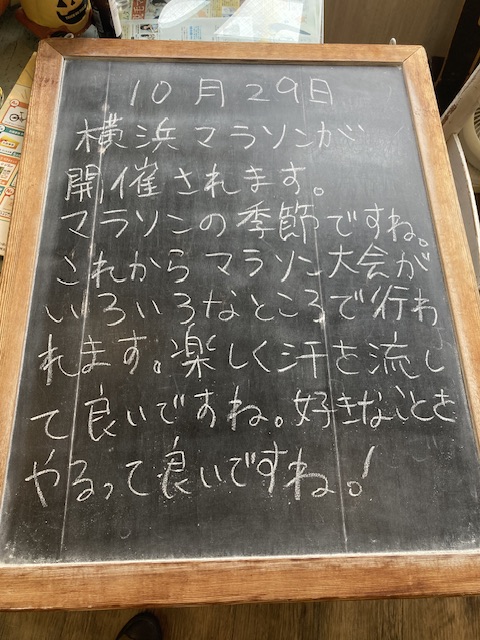 10月29日
横浜マラソンが
開催されます。
マラソンの季節ですね。
これからマラソン大会が
いろいろなところで行わ
れます。楽しく汗を流し
て良いですね。好きなことを
やるって良いですね。!